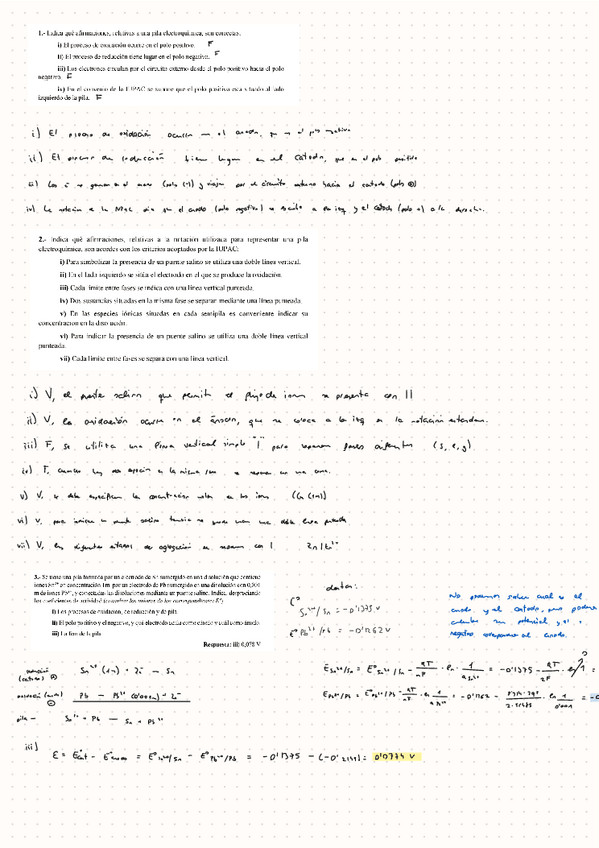 1.- Indica qué afirmaciones, relativas a una pila electroquímica, son correctas:
i) El proceso de oxidación ocurre en el polo positivo. F
ii) El proceso de reducción tiene lugar en el polo negativo. F
iii) Los electrones circulan por el circuito externo desde el polo positivo hacia el polo
negativo. F
iv) En el convenio de la IUPAC se asume que el polo positivo está situado al lado
izquierdo de la pila. F
i) El proceso de oxidación ocurre en el ánodo, que es el polo negativo
ii) El proceso de reducción tiene lugar en el cátodo, que es el polo positivo
iii) Los e- se generan en el (polo (-)) y viajan por el circuito externo hacia el cátodo (polo ⊕)
iv) La notación de la IUPAC el ánodo (polo negativo) se escribe a la izq y el cátodo a la derecha.
2.- Indica qué afirmaciones, relativas a la notación utilizada para representar una pila
electroquímica, son acordes con los criterios adoptados por la IUPAC:
i) Para simbolizar la presencia de un puente salino se utiliza una doble línea vertical.
ii) En el lado izquierdo se sitúa el electrodo en el que se produce la oxidación.
iii) Cada límite entre fases se indica con una línea vertical punteada.
iv) Dos sustancias situadas en la misma fase se separan mediante una línea punteada.
v) En las especies iónicas situadas en cada semipila es conveniente indicar su
concentración en la disolución.
vi) Para indicar la presencia de un puente salino se utiliza una doble línea vertical
punteada.
vii) Cada límite entre fases se separa con una línea vertical.
i) V, el puente salino que permite el flujo de iones se representa con ||
ii) V, la oxidación ocurre en el ánodo, que se coloca a la izq en la notación estándar.
iii) F, se utiliza una línea vertical simple "|" para separar fases diferentes (s, l, g)
iv) F, cuando hay dos especies en la misma fase se separan con una coma.
v) V, se debe especificar la concentración de los iones
vi) V, para indicar un puente salino también se puede usar una doble línea punteada
vii) V, los distintos estados de agregación se separan con | Zn/Zn²⁺
3.- Se tiene una pila formada por un electrodo de Sn sumergido en una disolución que contiene
iones Sn²⁺ en concentración 1m y por un electrodo de Pb sumergido en una disolución con 0,001
m de iones Pb²⁺, y conectadas las disoluciones mediante un puente salino. Indica, despreciando
los coeficientes de actividad
i) Los procesos de oxidación, de reducción y de pila.
ii) El polo positivo y el negativo, y qué electrodo actúa como ánodo y cuál como cátodo.
iii) La fem de la pila.
Respuesta: iii) 0,078 V
datos:
E°
Sn²⁺/Sn = -0'1375 V
E° Pb²⁺/Pb = -0'1262 V
No podemos saber cual es el
ánodo y el cátodo,
calcular su potencial y el +
negativo corresponde al ánodo.
reducción (cátodo) ⊕ Sn²⁺ (1m) + 2e⁻ → Sn
oxidación (ánodo) ⊖ Pb → Pb²⁺ (0'001m) + 2e⁻
pila → Sn²⁺ + Pb → Sn + Pb²⁺
E Sn²⁺/Sn = E° Sn²⁺/Sn - RT/nF · ln 1/a Sn²⁺ = -0'1375 - RT/2F · ln 1/1 =
E Pb²⁺/Pb = E° Pb²⁺/Pb - RT/nF · ln 1/a Pb²⁺ = -0'1262 - 8'314·298/2·96485 · ln 1/0'001 =
iii)
E = Ecat - Eánodo = E° Sn²⁺/Sn - E° Pb²⁺/Pb = -0'1375 - (-0'2149) = 0'0774 V